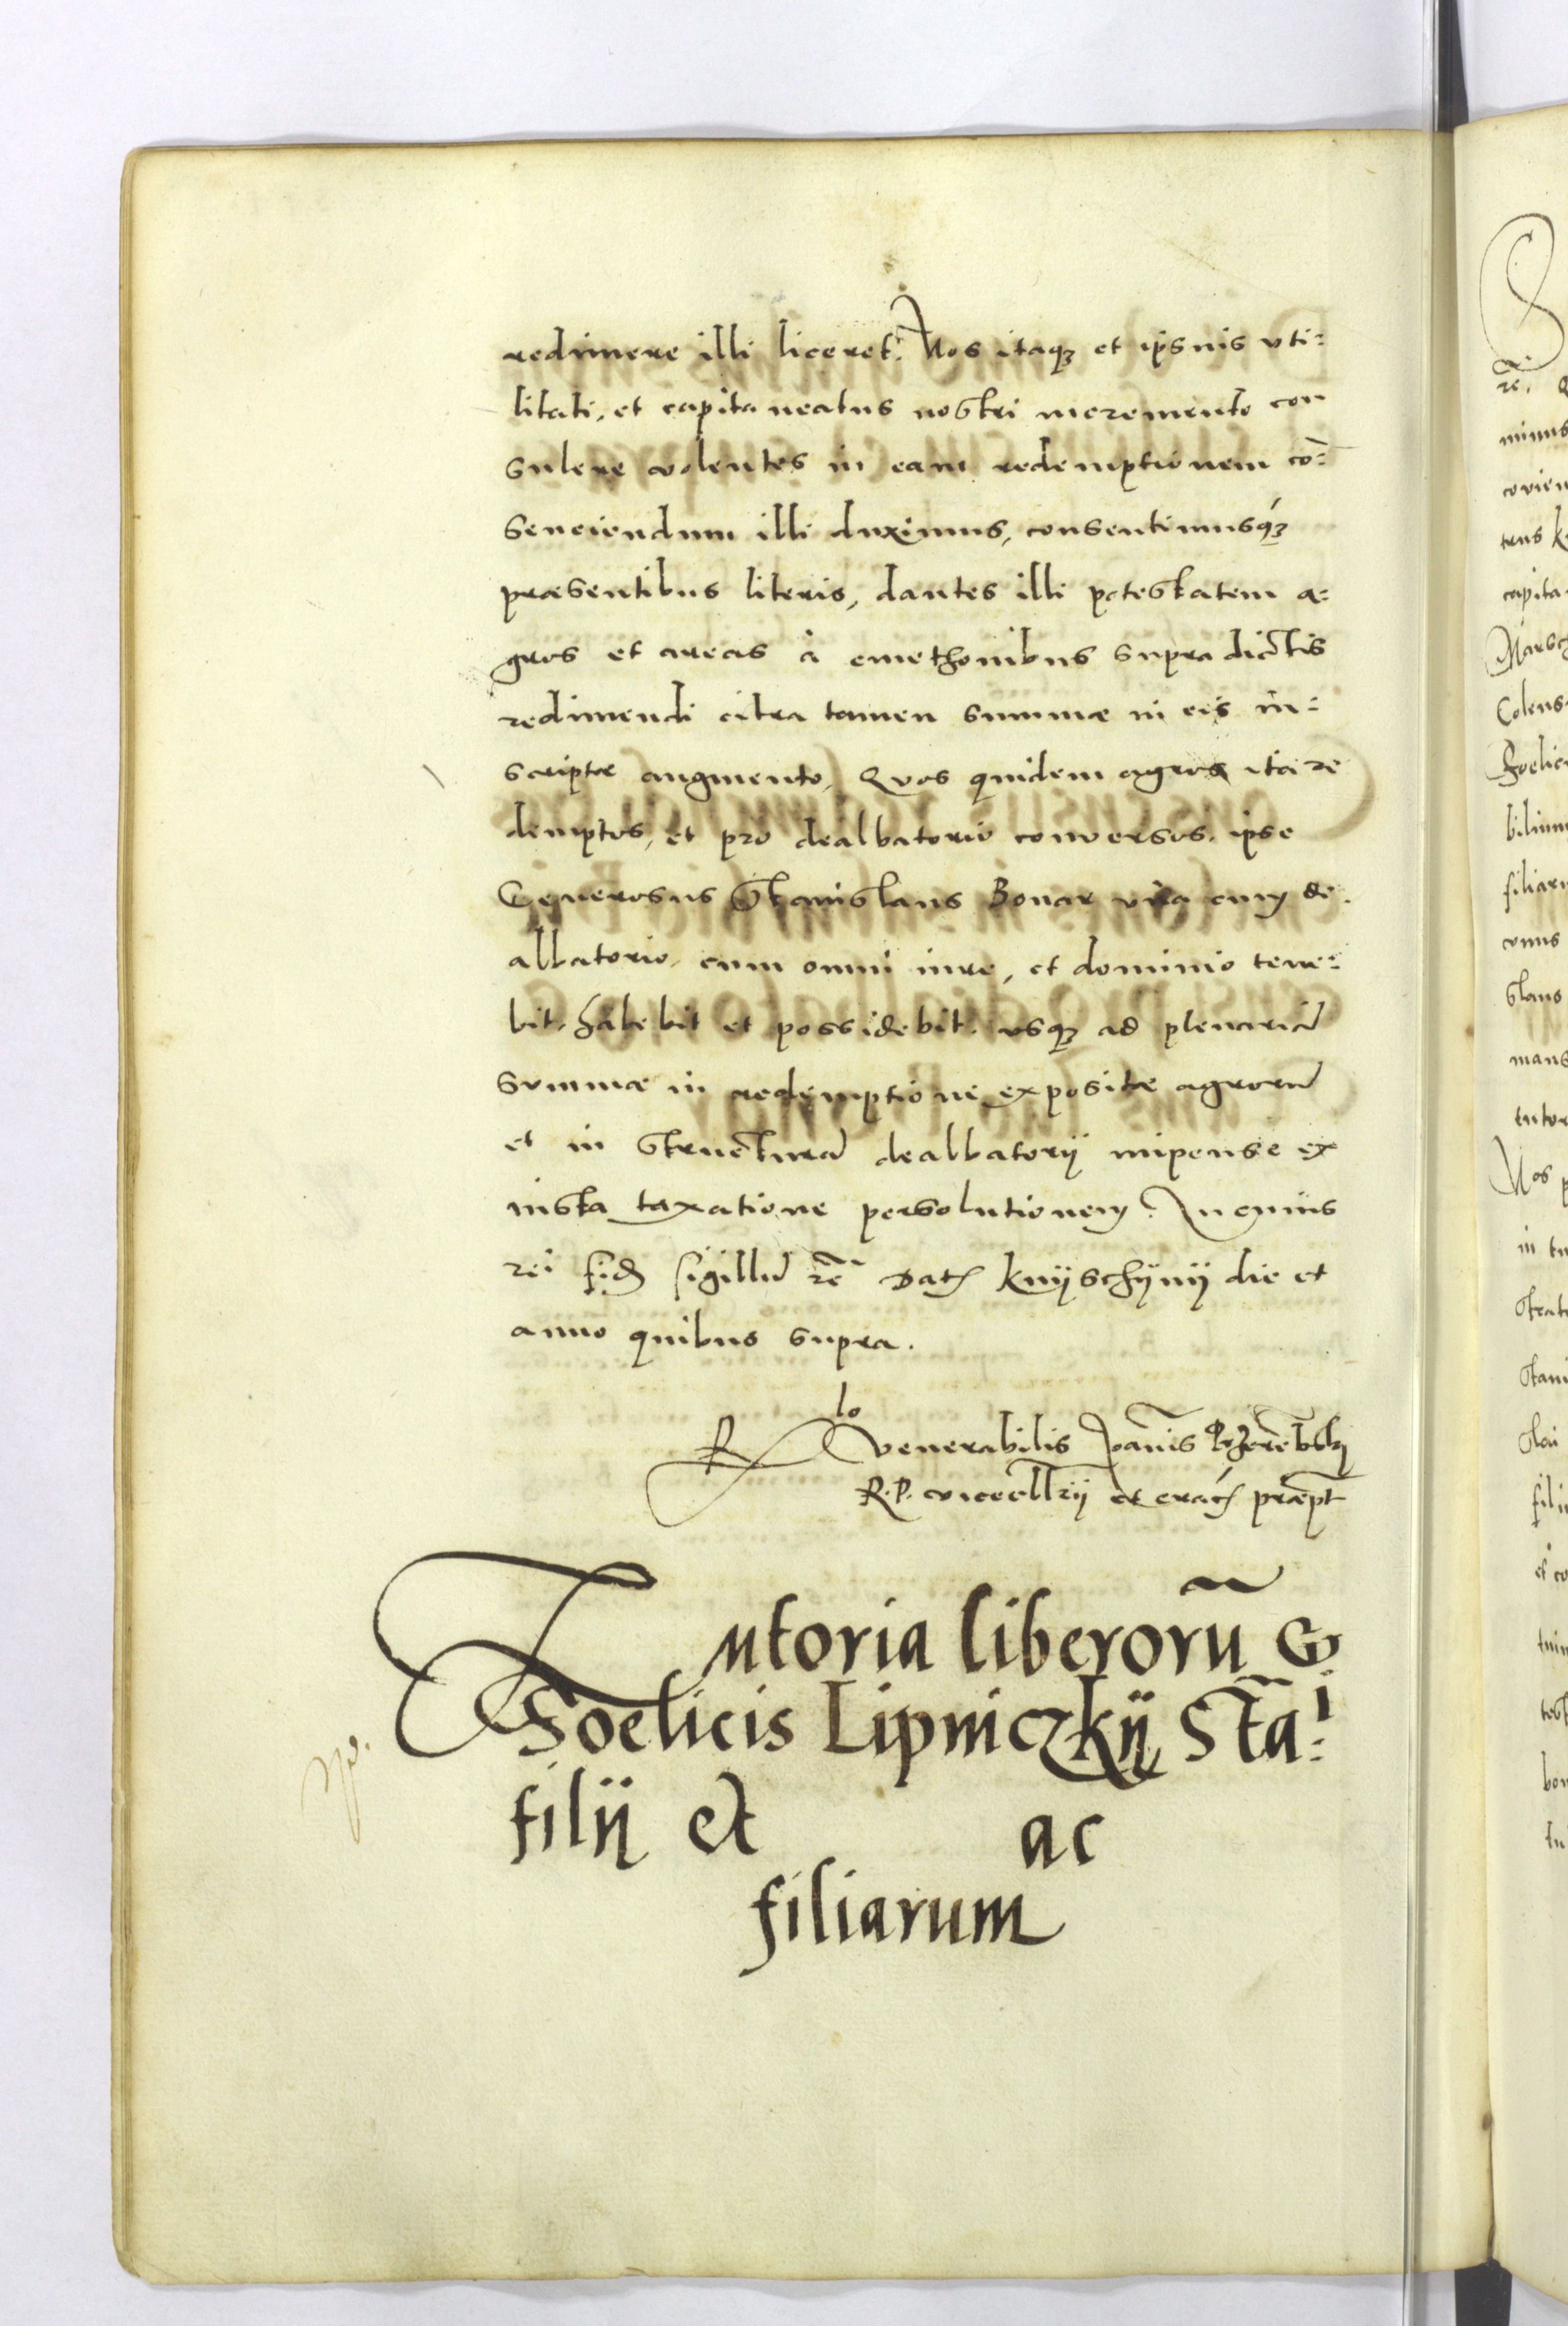 redimere illi liceret. Nos itaqꝫ et ipsius vti:
litati, et capitaneatus nostri incremento con
sulere volentes in eam redemptionem cō:
senciendum illi duximus, consentimusqꝫ
præsentibus literis, dantes illi potestatem a:
gros et areas à cmethonibus supra dictis
redimendi citra tamen summæ in eis in:
scriptæ augmento, Quos quidem agros ita re
demptos, et pro dealbatorio conversos. ipse
Generosus Stanislaus Bonar vna cum de.
albatorio, cum omni iure, et dominio tene:
bit, habebit et possidebit. vsqꝫ ad plenariā
summæ in redemptione expositæ agrorū
et in structurā dealbatorij impense ex
iusta taxatione persolutionem. In cuius
rei fid sigillū rē Dat Knijschijnij die et
anno quibus supra.
Rlo venerabilis Joānis
R. P. vicecllrij et crac præpt
Tutoria liberorū G
Foelicis Lipniczkij Sta:
filij et ac
filiarum